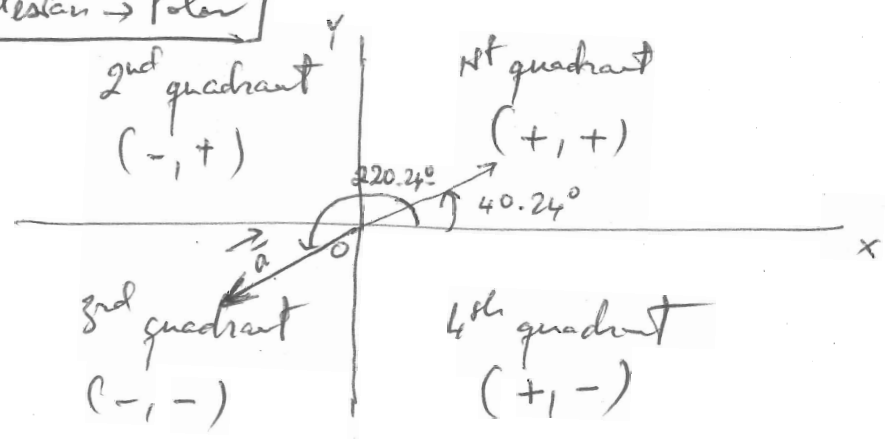 → Polar
Y
2nd quadrant
(-, +)
1st quadrant
(+, +)
220.24°
40.24°
a
O
X
3rd quadrant
(-, -)
4th quadrant
(+, -)